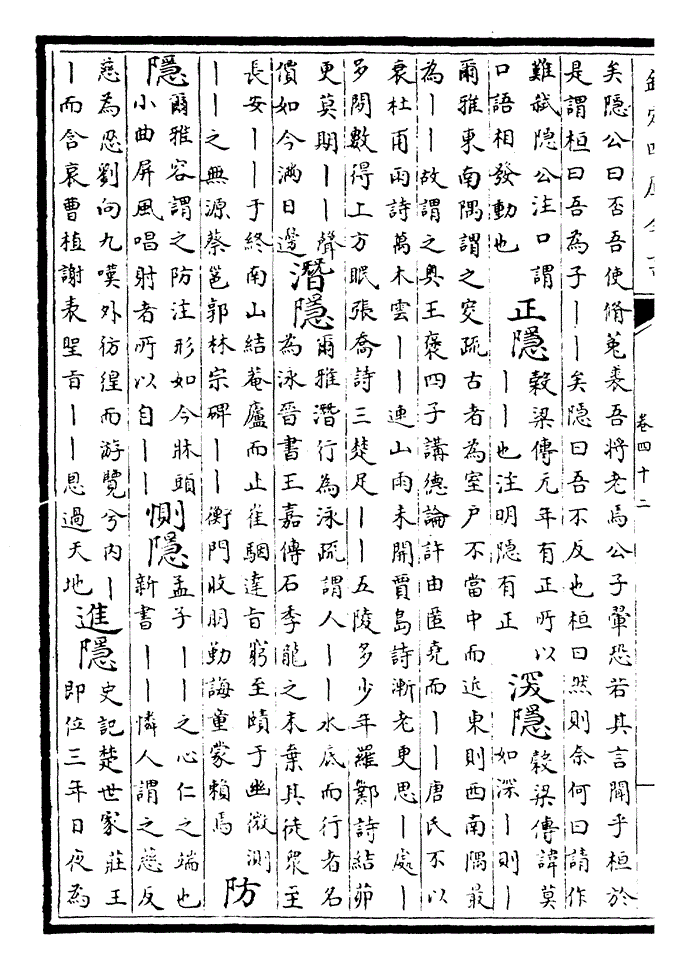 欽定四庫全書
卷四十二
矣隱公曰否吾使脩菟裘吾將老焉公子翬恐若其言聞乎桓於
是謂桓曰吾為子丨丨矣隱曰吾不反也桓曰然則奈何曰請作
難弒隱公注口謂
口語相發動也
正隱
榖梁傳元年有正所以
丨丨也注明隱有正
深隱
榖梁傳諱莫
如深丨則丨
爾雅東南隅謂之窔疏古者為室戶不當中而近東則西南隅最
為丨丨故謂之奥王褒四子講德論許由匿堯而丨丨唐氏不以
衰杜甫雨詩萬木雲丨丨連山雨未開賈島詩漸老更思丨處丨
多閒數得上方眠張喬詩三楚足丨丨五陵多少年羅鄴詩結茆
更莫期丨丨聲
價如今滿日邊
潛隱
爾雅潛行為泳疏謂人丨丨水底而行者名
為泳晉書王嘉傳石季龍之末棄其徒眾至
長安丨丨于終南山結菴廬而止崔駰達旨窮至賾于幽微測
丨丨之無源蔡邕郭林宗碑丨丨衡門收朋勤誨童蒙賴焉
防
隱
爾雅容謂之防注形如今牀頭
小曲屏風唱射者所以自丨丨
惻隱
孟子丨丨之心仁之端也
新書丨丨憐人謂之慈反
慈為忍劉向九嘆外彷徨而游覽兮内丨
丨而含哀曹植謝表聖旨丨丨恩過天地
進隱
史記楚世家莊王
即位三年日夜為